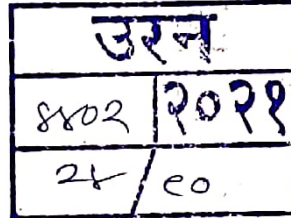 उरन
४४०२ २०२१
२४ / ९०